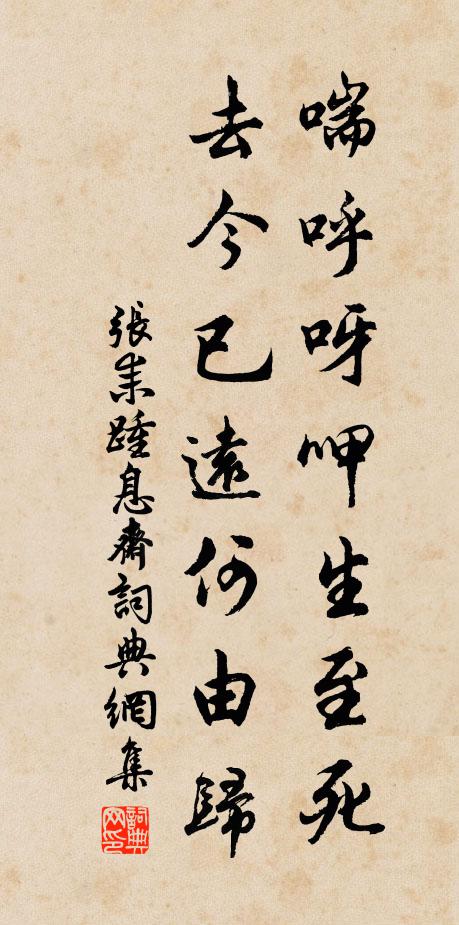 喘呼呀呷生至死
去今已遠何由歸
張耒踵息齋詞典網集
詞典网印